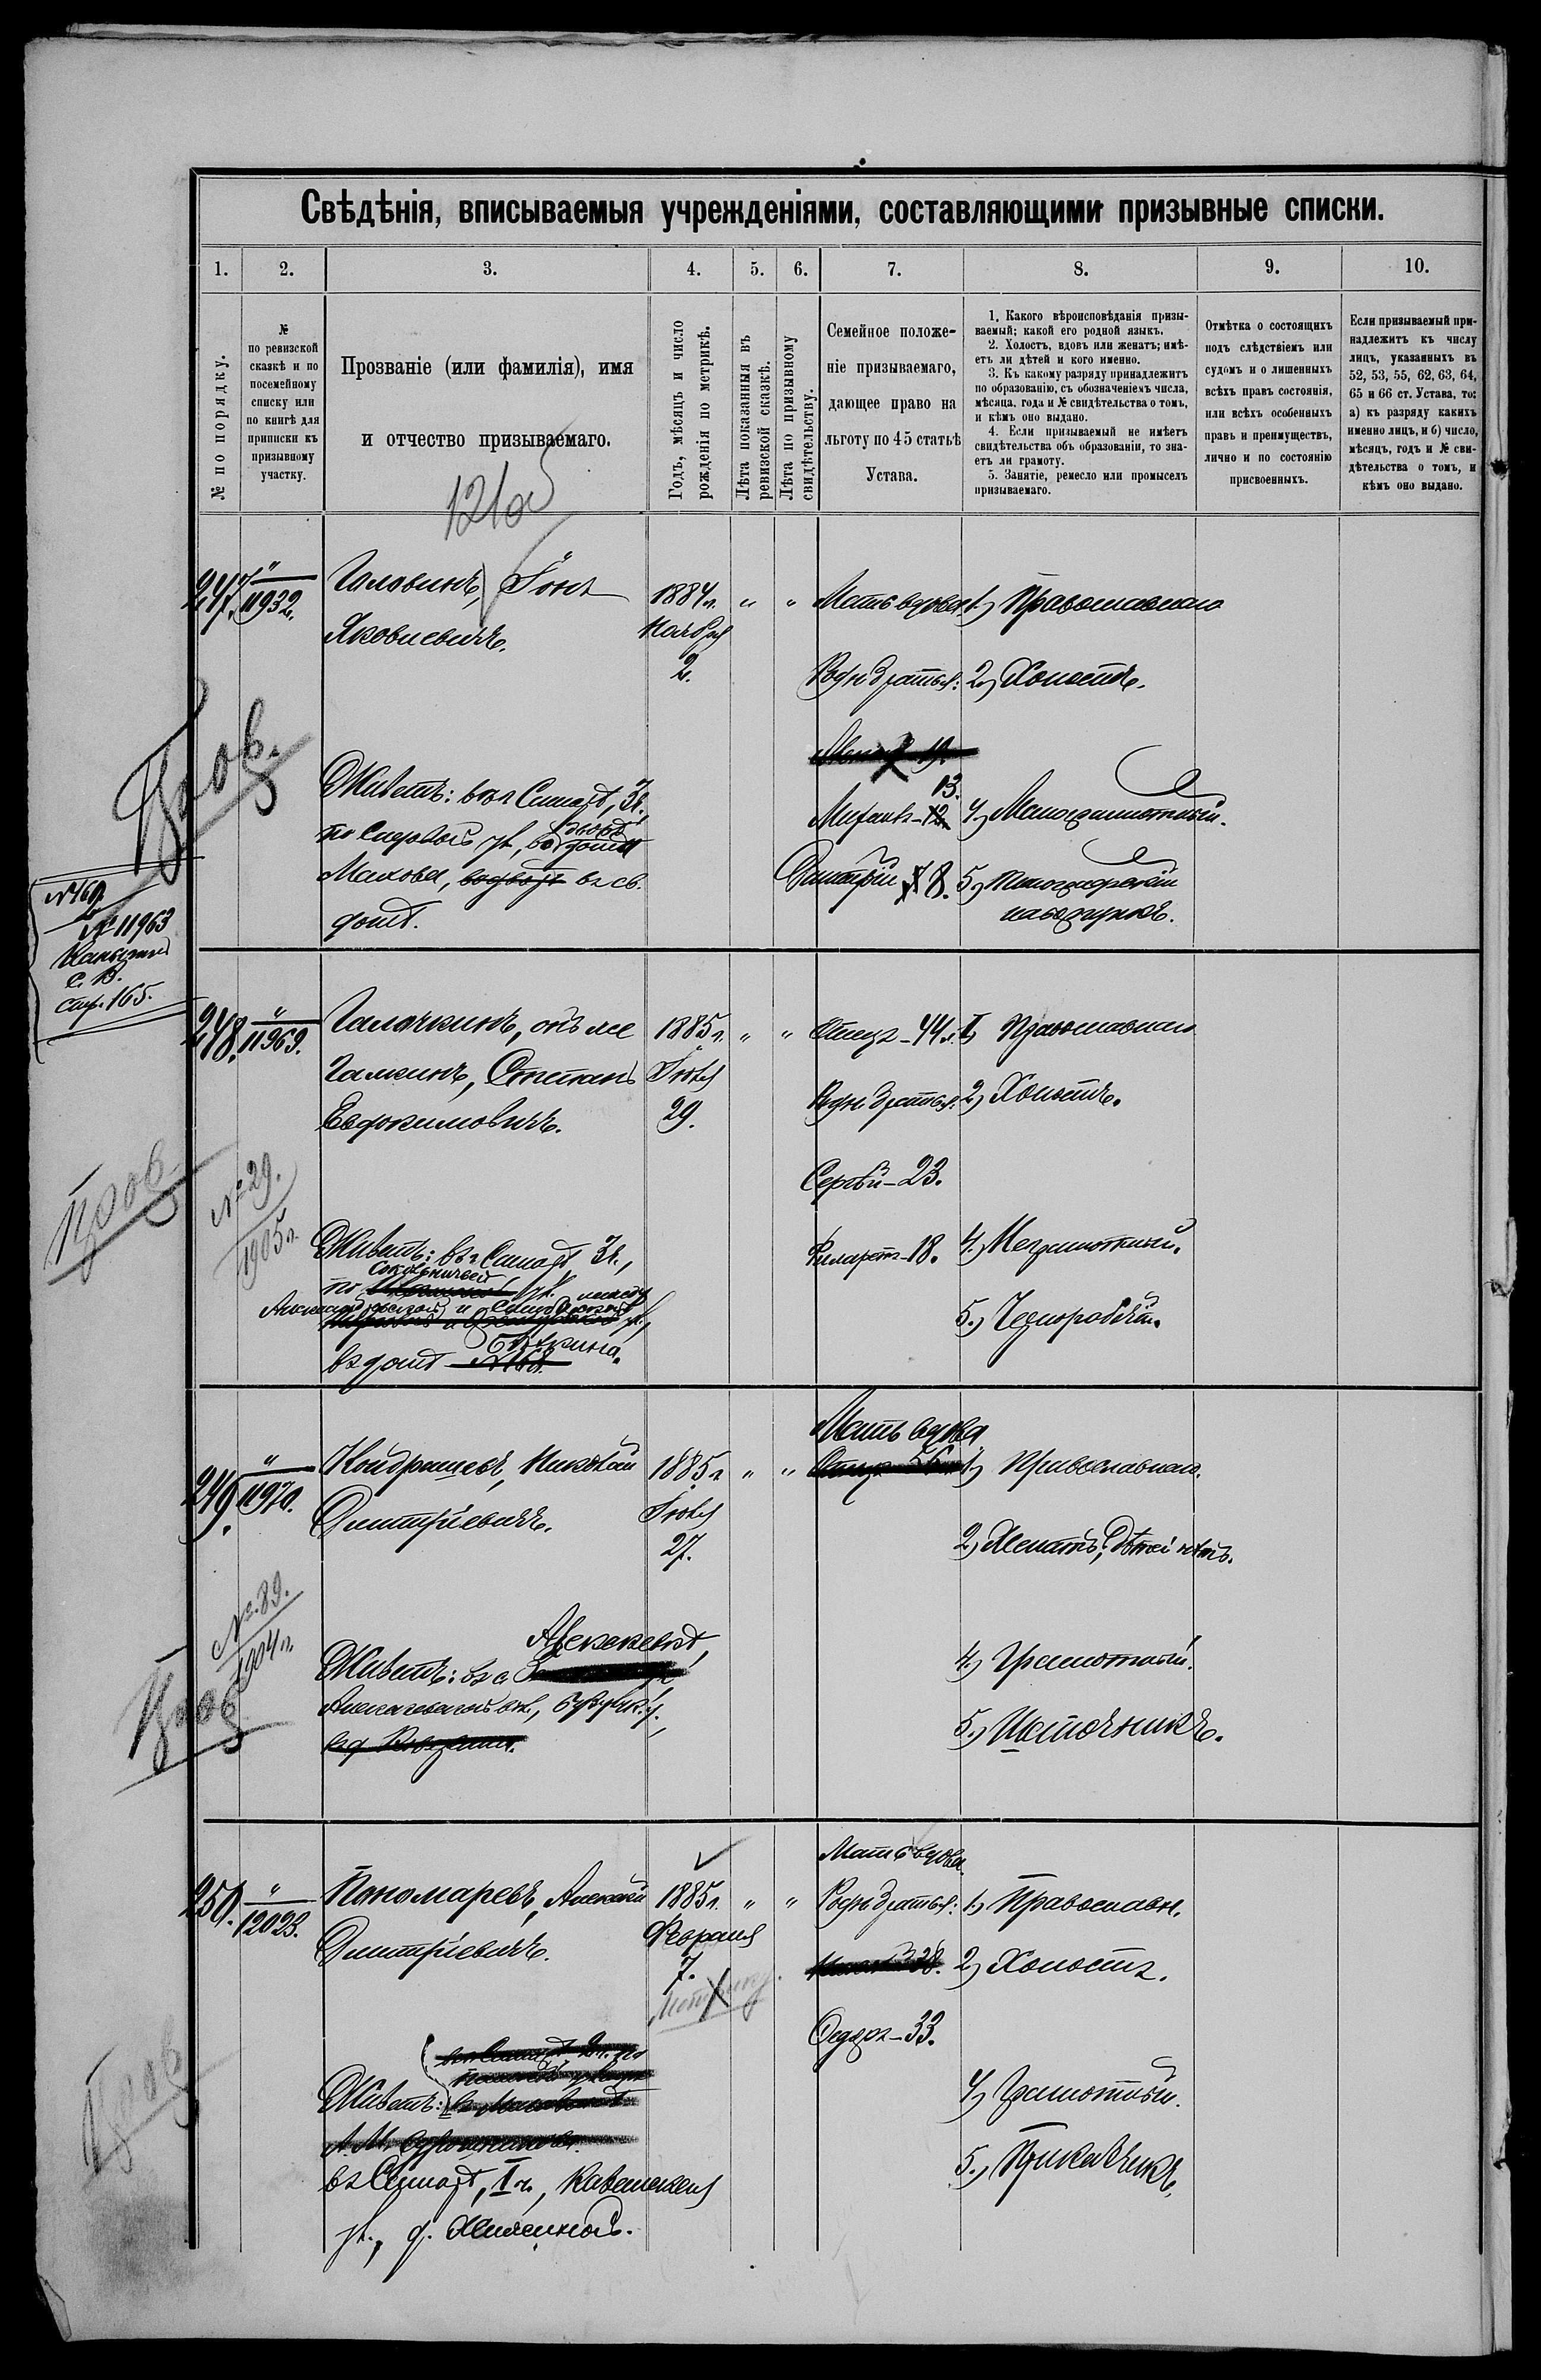 Свѣдѣнія, вписываемыя учрежденіями, составляющими призывные списки.
1. 2. 3. 4. 5. 6. 7. 8. 9. 10.
№ по порядку.
№
по ревизской
сказкѣ и по
посемейному
списку или
по книгѣ для
приписки къ
призывному
участку.
Прозваніе (или фамилія), имя
и отчество призываемаго.
Годъ, мѣсяцъ и число
рожденія по метрикѣ.
Лѣта показанныя въ
ревизской сказкѣ.
Лѣта по призывному
свидѣтельству.
Семейное положе-
ніе призываемаго,
дающее право на
льготу по 45 статьѣ
Устава.
1. Какого вѣроисповѣданія призы-
ваемый; какой его родной языкъ.
2. Холостъ, вдовъ или женатъ; имѣ-
етъ ли дѣтей и кого именно.
3. Къ какому разряду принадлежитъ
по образованію, съ обозначеніемъ числа,
мѣсяца, года и № свидѣтельства о томъ,
и кѣмъ оно выдано.
4. Если призываемый не имѣетъ
свидѣтельства объ образованіи, то зна-
етъ ли грамоту.
5. Занятіе, ремесло или промыселъ
призываемаго.
Отмѣтка о состоящихъ
подъ слѣдствіемъ или
судомъ и о лишенныхъ
всѣхъ правъ состоянія,
или всѣхъ особенныхъ
правъ и преимуществъ,
лично и по состоянію
присвоенныхъ.
Если призываемый при-
надлежитъ къ числу
лицъ, указанныхъ въ
52, 53, 55, 62, 63, 64,
65 и 66 ст. Устава, то:
а) къ разряду какихъ
именно лицъ, и б) число,
мѣсяцъ, годъ и № сви-
дѣтельства о томъ, и
кѣмъ оно выдано.
247. " 11932.
Головинъ, Іона
Яковлевичъ.
1884 г. " "
Ноября
2.
Мать вдова
Родн. братья:
13.
Михаилъ - 12
Дмитрій 7 8.
1) Православнаго
2) Холостъ.
4) Малограмотный.
5) Типографскій
наборщикъ.
Пров.
Живетъ: въ г. Самарѣ, 3 ч.,
по Садовой ул., во дворѣ
Махова, въ св.
домѣ.
№ 160
№ 11963
С. В.
стр. 165.
248. " 11969.
Галочкинъ, онъ же
Галкинъ, Степанъ
Евдокимовичъ.
1885 г. " "
Іюля
29.
Отецъ - 44 л.
Родн. братья:
Сергѣй - 23.
Филаретъ - 18.
1) Православнаго
2) Холостъ.
4.) Неграмотный.
5.) Чернорабочій.
Пров.
№ 29.
1905 г.
Живетъ: въ г. Самарѣ, 3 ч.,
Сокольничьей
по ул. между
въ домѣ № 168.
249. " 11970.
Кондрашевъ, Николай
Дмитріевичъ.
1885 г. " "
Іюля
27.
Мать вдова
1) Православнаго.
2) Женатъ; дѣтей нѣтъ.
4.) Грамотный.
5.)
№ 89.
1904 г.
Пров.
Алексѣевкѣ,
Живетъ: въ с.
Алексѣевской вол., Бузулук. у.
250. " 12023.
Пономаревъ, Алексѣй
Дмитріевичъ.
1885 г. " "
Февраля
7.
Мать вдова.
Родн. братья:
Федоръ - 33.
1) Православн.
2) Холостъ.
4) Грамотный.
5.) Прикащикъ.
Пров.
Живетъ:
въ Самарѣ, I ч.,
ул., д.